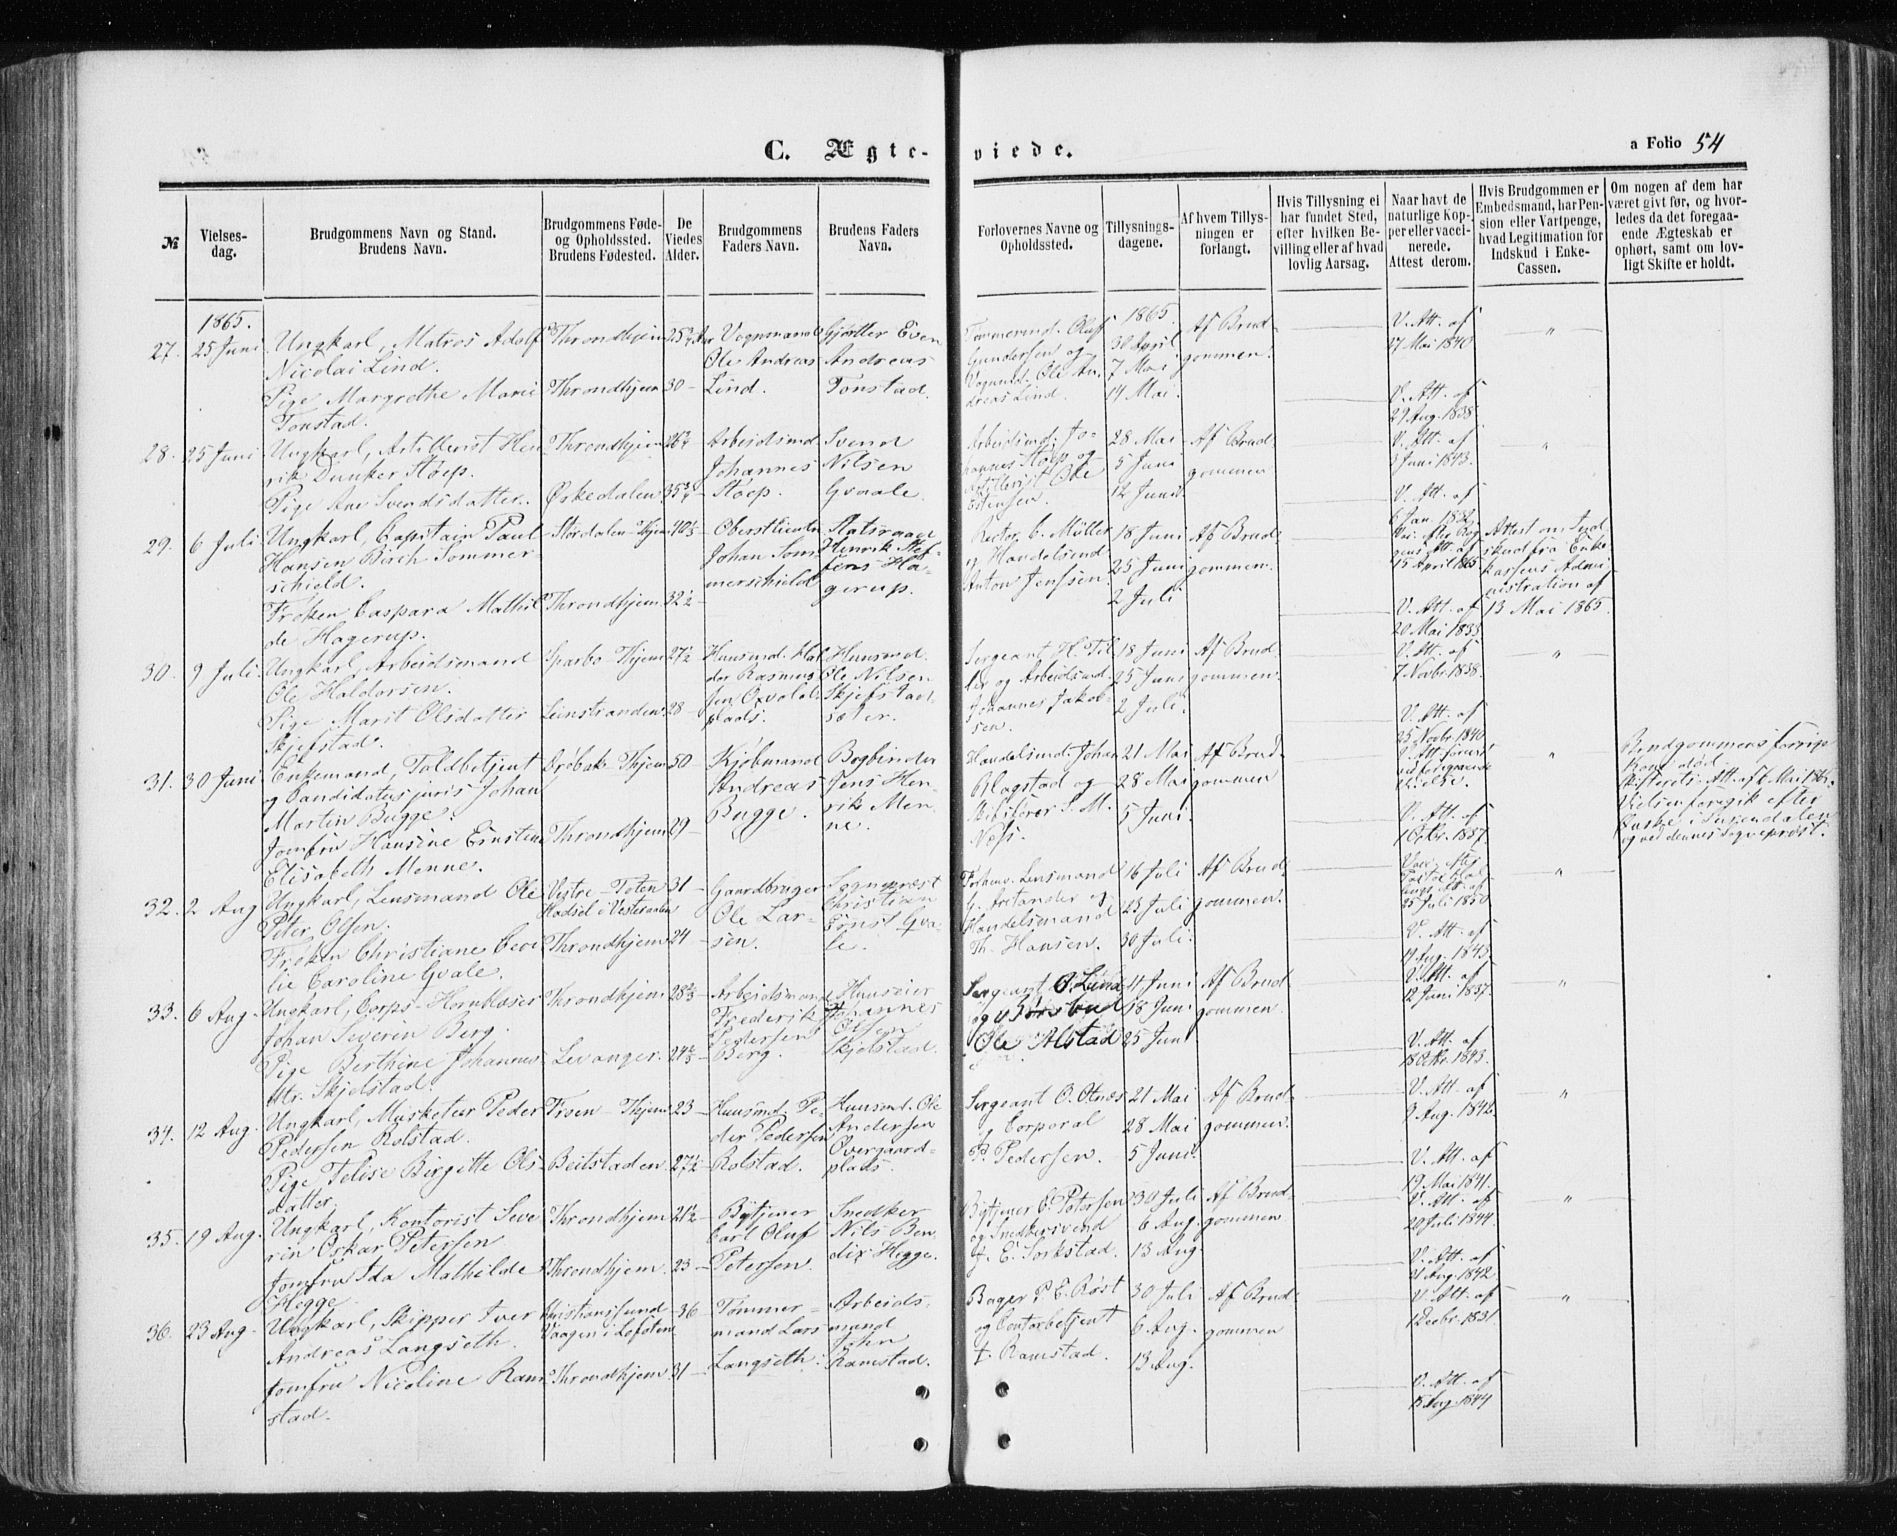 C. Ægte-viede.
a Folio 54
№
Vielses-dag.
Brudgommens Navn og Stand. Brudens Navn.
Brudgommens Føde- og Opholdssted. Brudens Fødested.
De Viedes Alder.
Brudgommens Faders Navn.
Brudens Faders Navn.
Forlovernes Navne og Opholdssted.
Tillysnings-dagene.
Af hvem Tillys-ningen er forlangt.
Hvis Tillysning ei har fundet Sted, efter hvilken Be-villing eller af hvad lovlig Aarsag.
Naar havt de naturlige Kop-per eller vacci-nerede. Attest derom.
Hvis Brudgommen er Embedsmand, har Pen-sion eller Vartpenge, hvad Legitimation for Indskud i Enke-Cassen.
Om nogen af dem har været givt før, og hvor-ledes da det foregaa-ende Ægteskab er ophørt, samt om lov-ligt Skifte er holdt.
1865.
27. 25 Juni
Ungkarl, Matros Adolf
Nicolai Lind.
Pige Margrethe Marie
Tonstad.
Throndhjem
Throndhjem 30
Vognmand
Ole Andreas
Lind.
Gjørtler Even
Andreas
Tonstad.
Tømmermd. Oluf
Gundersen og
Vognmd. Ole An-
dreas Lind.
1865.
30 April
7 Mai
14 Mai.
Af Brud-
gommen.
V. Att. af
17 Mai 1840
V. Att. af
29 Aug. 1838
28. 25 Juni
Ungkarl, Artillerist Hen-
rik Dunker Støep.
Pige Ane Svendsdatter.
Throndhjem
Ørkedalen
Arbeidsmd
Johannes
Støep.
Svend
Nilsen
Gvaale.
Arbeidsmd. Jo-
hannes Støep og
Artillerist Ole
Estensen.
28 Mai
5 Juni
12 Juni
Af Brud-
gommen
V. Att. af
3 Juni 1843.
V. Att. af
6 Jan. 1832.
29. 6 Juli
Ungkarl, Capitain Paul
Hansen Birch Sommer
schield.
Frøken Caspara Mathil
de Hagerup.
Størdalen - Thjem 40½
Throndhjem 32½
Oberstlieutn
Johan Som
merschield
Statsraad
Henrik Stef-
fens Ha-
gerup.
Rector C. Müller
og Handelsmd
Anton Jenssen.
18 Juni
25 Juni
2 Juli
Af Brud-
gommen.
15 April 1865
V. Att. af
20 Mai 1833
Attest om Ind
skud fra Enke
kassens Admi
nistration af
13 Mai 1865.
30. 9 Juli
Ungkarl, Arbeidsmand
Ole Haldorsen.
Pige Marit Olsdatter
Skjefstad.
Sparbo - Thjem 27½
Leinstranden 28
Huusmd. Hal
dor Rasmus
sen Oxvold
plads.
Huusmd.
Ole Nilsen
Skjefstad
sæter.
Sergeant H. Til
ler og Arbeidsmd.
Johannes Jakob-
sen.
18 Juni
25 Juni
2 Juli.
Af Brud
gommen.
V. Att. af
7 Novbr 1838.
V. Att. af
25 Novbr. 1840
31. 30 Juni
Enkemand, Toldbetjent
og Candidatus juris Johan
Martin Bugge.
Jomfru Hansine Ernstine
Elisabeth Menne.
Drøbak - Thjem 50
Throndhjem 29
Kjøbmand
Andreas
Bugge.
Bogbinder
Jens Hen-
rik Men-
ne.
Handelsmd. Johan
Blagstad og
Skibsfører S. M.
Næss.
21 Mai
28 Mai
5 Juni.
Af Brud-
gommen
V. Att. forevist
ved foregaaende
Vielse.
V. Att. af
1 Octbr. 1837.
Brudgommens forrige
Kone død.
Skifterets Att. af 7 Mai 186.
Vielsen foregik efter
Ønske i Surendalen
og ved dennes Sogneprest.
32. 2 Aug
Ungkarl, Lensmand Ole
Peter Olsen.
Frøken Christiane Ceci
lie Caroline Gvale.
Vestre - Toten 31
Hadsel i Vesteraalen
Throndhjem 24
Gaardbruger
Ole Lar-
sen.
Sognepræst
Christian
Ernst Gva-
le.
Forhenv. Lensmand
G. Arctander og
Handelsmand
Th. Hansen.
16 Juli
23 Juli
30 Juli.
Af Brud-
gommen.
25 Juli 1850
V. Att. af
19 Aug. 1843.
33. 6 Aug.
Ungkarl, Corps-Hornblæser
Johan Severin Berg.
Pige Berthine Johannes
dtr. Skjelstad.
Throndhjem
Levanger.
Arbeidsmand
Frederik
Pedersen
Berg.
Huuseier
Johannes
Olsen
Skjelstad.
Sergeant O. Lund
og Børsbud
Ole Alstad
11 Juni
18 Juni
25 Juni
Af Brud
gommen.
V. Att. af
12 Juni 1837.
V. Att. af
18 Oktbr. 1843.
34. 12 Aug.
Ungkarl, Musketeer Peder
Pedersen Rolstad.
Pige Felise Birgitte Ols
datter.
Froen - Thjem 23
Beitstaden 27½
Huusmd. Pe-
der Pedersen
Rolstad.
Huusmd. Ole
Andersen
Overgaard-
plads.
Sergeant O. Otnæs
og Corporal
P. Pedersen.
21 Mai
28 Mai
5 Juni.
Af Brud-
gommen.
V. Att. af
9 Aug. 1842.
V. Att. af
19 Mai 1841.
35. 19 Aug.
Ungkarl, Kontorist Seve
rin Oskar Petersen
Jomfru Ida Mathilde
Hegge.
Throndhjem 21½
Throndhjem. 23
Bytjener
Carl Oluf
Petersen.
Snedker
Nils Ben
dix Hegge.
Bytjener C. Petersen
og Snedkersvend
J. E. Sorkstad.
30 Juli
6 Aug.
13 Aug.
Af Brud-
gommen
V. Att. af
20 Juli 1844.
V. Att. af
31 Aug. 1842
36. 23 Aug.
Ungkarl, Skipper Iver
Andreas Langseth.
Jomfru Nicoline Ram
stad.
Christianssund 36
Vaagen i Lofoten
Throndhjem 31
Tømmer-
mand Lars
Langseth.
Arbeids-
mand
John
Ramstad.
Bager P. E. Røst
og Contorbetjent
J. Ramstad.
30 Juli
6 Aug.
13 Aug.
Af Brud-
gommen
V. Att. af
12 Decbr. 1831
V. Att. af
15 Aug. 1844